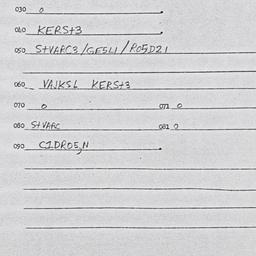 030 0
040 KERSt3
050 StVARC3/GE5L1/R05D21
060 VAJKSL KERSt3
070 0 071 0
080 StVARC 081 0
090 C1DR05,N